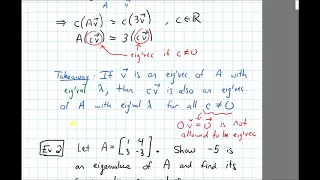 A v⃗
⇒ c(Av⃗) = c(3v⃗) , c∈ℝ
A(cv⃗) = 3(cv⃗)
eig'vec if c≠0
Takeaway: If v⃗ is an eig'vec. of A with
eig'val λ, then cv⃗ is also an eig'vec.
of A with eig'val λ for all c≠0
0v⃗ = 0⃗ is not
allowed to be eig'vec
Ex 2 Let A = [1 4
3 -3]. Show -5 is
an eigenvalue of A and find its